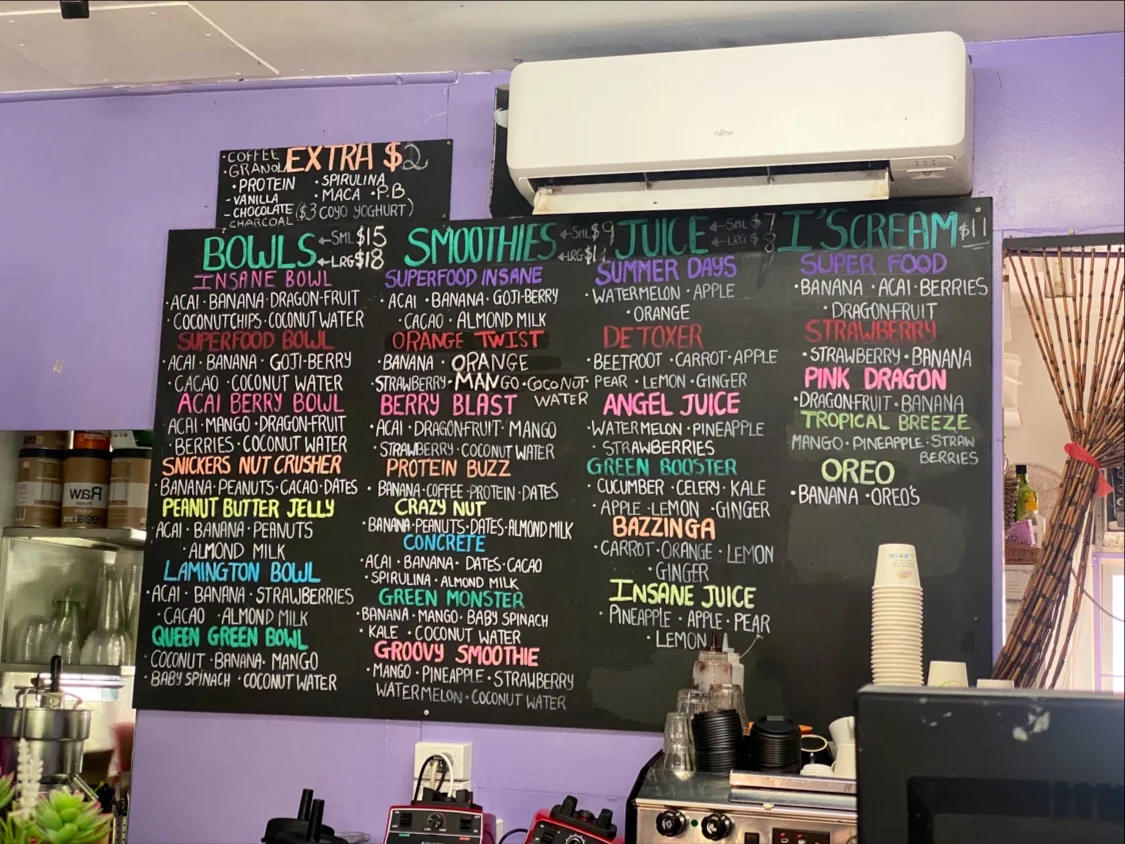 EXTRA $2
· COFFEE
· GRANOLA
· PROTEIN · SPIRULINA
· VANILLA · MACA · P.B
- CHOCOLATE ($3 COYO YOGHURT)
CHARCOAL
FUJITSU
BOWLS ←SML $15
←LRG $18
INSANE BOWL
· ACAI · BANANA · DRAGON-FRUIT
· COCONUTCHIPS · COCONUT WATER
SUPERFOOD BOWL
· ACAI · BANANA · GOJI-BERRY
· CACAO · COCONUT WATER
ACAI BERRY BOWL
· ACAI · MANGO · DRAGON-FRUIT
· BERRIES · COCONUT WATER
SNICKERS NUT CRUSHER
BANANA · PEANUTS · CACAO · DATES
PEANUT BUTTER JELLY
ACAI · BANANA · PEANUTS
· ALMOND MILK
LAMINGTON BOWL
· ACAI · BANANA · STRAWBERRIES
· CACAO · ALMOND MILK
QUEEN GREEN BOWL
· COCONUT · BANANA · MANGO
· BABY SPINACH · COCONUT WATER
SMOOTHIES ←SML $9
←LRG
SUPERFOOD INSANE
· ACAI · BANANA · GOJI-BERRY
· CACAO · ALMOND MILK
ORANGE TWIST
· BANANA · ORANGE
· STRAWBERRY · MANGO · COCONUT
WATER
BERRY BLAST
· ACAI · DRAGONFRUIT · MANGO
· STRAWBERRY · COCONUT WATER
PROTEIN BUZZ
· BANANA · COFFEE · PROTEIN · DATES
CRAZY NUT
· BANANA · PEANUTS · DATES · ALMOND MILK
CONCRETE
· ACAI · BANANA · DATES · CACAO
· SPIRULINA · ALMOND MILK
GREEN MONSTER
· BANANA · MANGO · BABY SPINACH
· KALE · COCONUT WATER
GROOVY SMOOTHIE
· MANGO · PINEAPPLE · STRAWBERRY
WATERMELON · COCONUT WATER
JUICE ←SML $7
←LRG $8
SUMMER DAYS
· WATERMELON · APPLE
· ORANGE
DETOXER
· BEETROOT · CARROT · APPLE
PEAR · LEMON · GINGER
ANGEL JUICE
· WATERMELON · PINEAPPLE
· STRAWBERRIES
GREEN BOOSTER
· CUCUMBER · CELERY · KALE
· APPLE · LEMON · GINGER
BAZZINGA
· CARROT · ORANGE · LEMON
· GINGER
INSANE JUICE
· PINEAPPLE · APPLE · PEAR
· LEMON
I'SCREAM $11
SUPER FOOD
· BANANA · ACAI · BERRIES
· DRAGONFRUIT
STRAWBERRY
· STRAWBERRY · BANANA
PINK DRAGON
· DRAGON-FRUIT · BANANA
TROPICAL BREEZE
MANGO · PINEAPPLE · STRAW
BERRIES
OREO
· BANANA · OREO'S
Raw